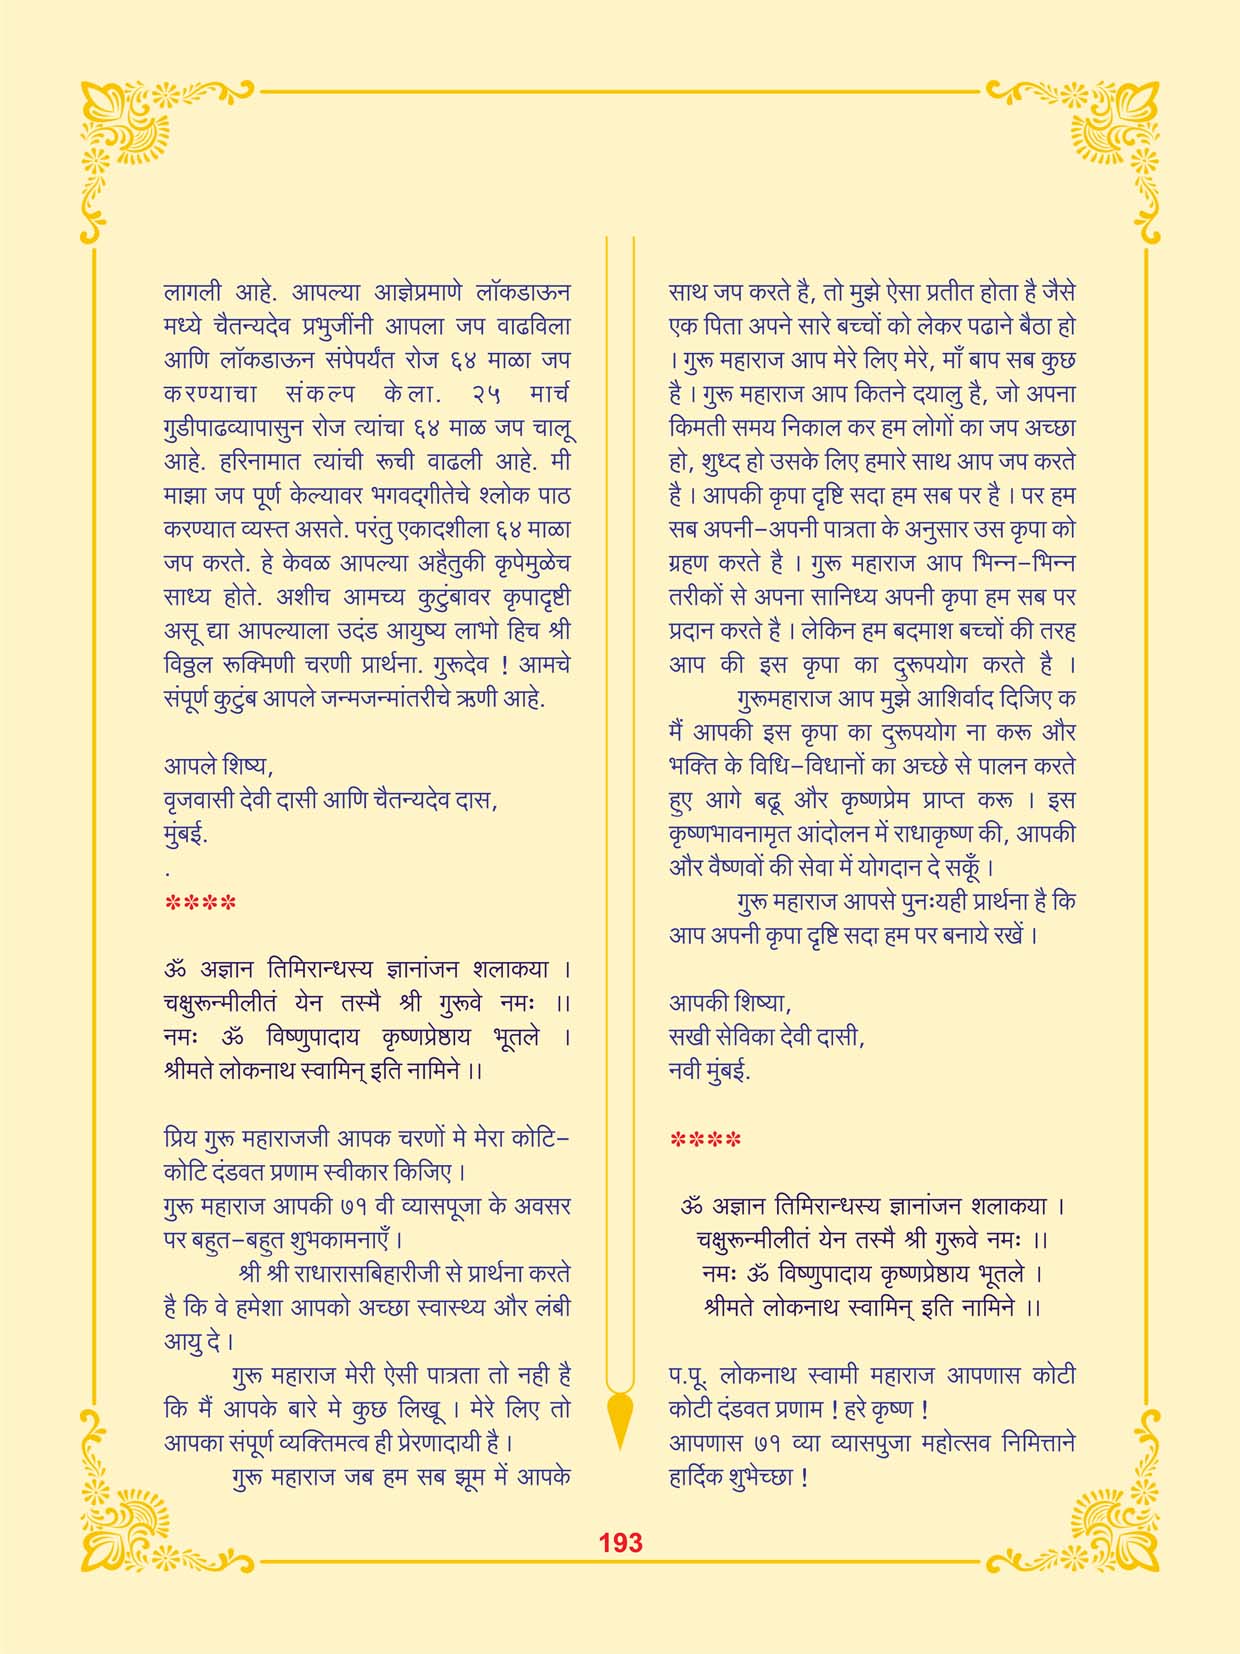 लागली आहे. आपल्या आज्ञेप्रमाणे लॉकडाऊन
मध्ये चैतन्यदेव प्रभुजींनी आपला जप वाढविला
आणि लॉकडाऊन संपेपर्यंत रोज ६४ माळा जप
करण्याचा संकल्प केला. २५ मार्च
गुडीपाढव्यापासुन रोज त्यांचा ६४ माळ जप चालू
आहे. हरिनामात त्यांची रूची वाढली आहे. मी
माझा जप पूर्ण केल्यावर भगवद्गीतेचे श्लोक पाठ
करण्यात व्यस्त असते. परंतु एकादशीला ६४ माळा
जप करते. हे केवळ आपल्या अहैतुकी कृपेमुळेच
साध्य होते. अशीच आमच्य कुटुंबावर कृपादृष्टी
असू द्या आपल्याला उदंड आयुष्य लाभो हिच श्री
विठ्ठल रूक्मिणी चरणी प्रार्थना. गुरूदेव ! आमचे
संपूर्ण कुटुंब आपले जन्मजन्मांतरीचे ऋणी आहे.
आपले शिष्य,
वृजवासी देवी दासी आणि चैतन्यदेव दास,
मुंबई.
.
****
ॐ अज्ञान तिमिरान्धस्य ज्ञानांजन शलाकया ।
चक्षुरून्मीलीतं येन तस्मै श्री गुरूवे नमः ।।
नमः ॐ विष्णुपादाय कृष्णप्रेष्ठाय भूतले ।
श्रीमते लोकनाथ स्वामिन् इति नामिने ।।
प्रिय गुरू महाराजजी आपक चरणों मे मेरा कोटि-
कोटि दंडवत प्रणाम स्वीकार किजिए ।
गुरू महाराज आपकी ७१ वी व्यासपूजा के अवसर
पर बहुत-बहुत शुभकामनाएँ ।
श्री श्री राधारासबिहारीजी से प्रार्थना करते
है कि वे हमेशा आपको अच्छा स्वास्थ्य और लंबी
आयु दे ।
गुरू महाराज मेरी ऐसी पात्रता तो नही है
कि मैं आपके बारे मे कुछ लिखू । मेरे लिए तो
आपका संपूर्ण व्यक्तिमत्व ही प्रेरणादायी है ।
गुरू महाराज जब हम सब झूम में आपके
साथ जप करते है, तो मुझे ऐसा प्रतीत होता है जैसे
एक पिता अपने सारे बच्चों को लेकर पढाने बैठा हो
। गुरू महाराज आप मेरे लिए मेरे, माँ बाप सब कुछ
है । गुरू महाराज आप कितने दयालु है, जो अपना
किमती समय निकाल कर हम लोगों का जप अच्छा
हो, शुध्द हो उसके लिए हमारे साथ आप जप करते
है । आपकी कृपा दृष्टि सदा हम सब पर है । पर हम
सब अपनी-अपनी पात्रता के अनुसार उस कृपा को
ग्रहण करते है । गुरू महाराज आप भिन्न-भिन्न
तरीकों से अपना सानिध्य अपनी कृपा हम सब पर
प्रदान करते है । लेकिन हम बदमाश बच्चों की तरह
आप की इस कृपा का दुरूपयोग करते है ।
गुरूमहाराज आप मुझे आशिर्वाद दिजिए क
मैं आपकी इस कृपा का दुरूपयोग ना करू और
भक्ति के विधि-विधानों का अच्छे से पालन करते
हुए आगे बढू और कृष्णप्रेम प्राप्त करू । इस
कृष्णभावनामृत आंदोलन में राधाकृष्ण की, आपकी
और वैष्णवों की सेवा में योगदान दे सकूँ ।
गुरू महाराज आपसे पुनःयही प्रार्थना है कि
आप अपनी कृपा दृष्टि सदा हम पर बनाये रखें ।
आपकी शिष्या,
सखी सेविका देवी दासी,
नवी मुंबई.
****
ॐ अज्ञान तिमिरान्धस्य ज्ञानांजन शलाकया ।
चक्षुरून्मीलीतं येन तस्मै श्री गुरूवे नमः ।।
नमः ॐ विष्णुपादाय कृष्णप्रेष्ठाय भूतले ।
श्रीमते लोकनाथ स्वामिन् इति नामिने ।।
प.पू. लोकनाथ स्वामी महाराज आपणास कोटी
कोटी दंडवत प्रणाम ! हरे कृष्ण !
आपणास ७१ व्या व्यासपुजा महोत्सव निमित्ताने
हार्दिक शुभेच्छा !
193